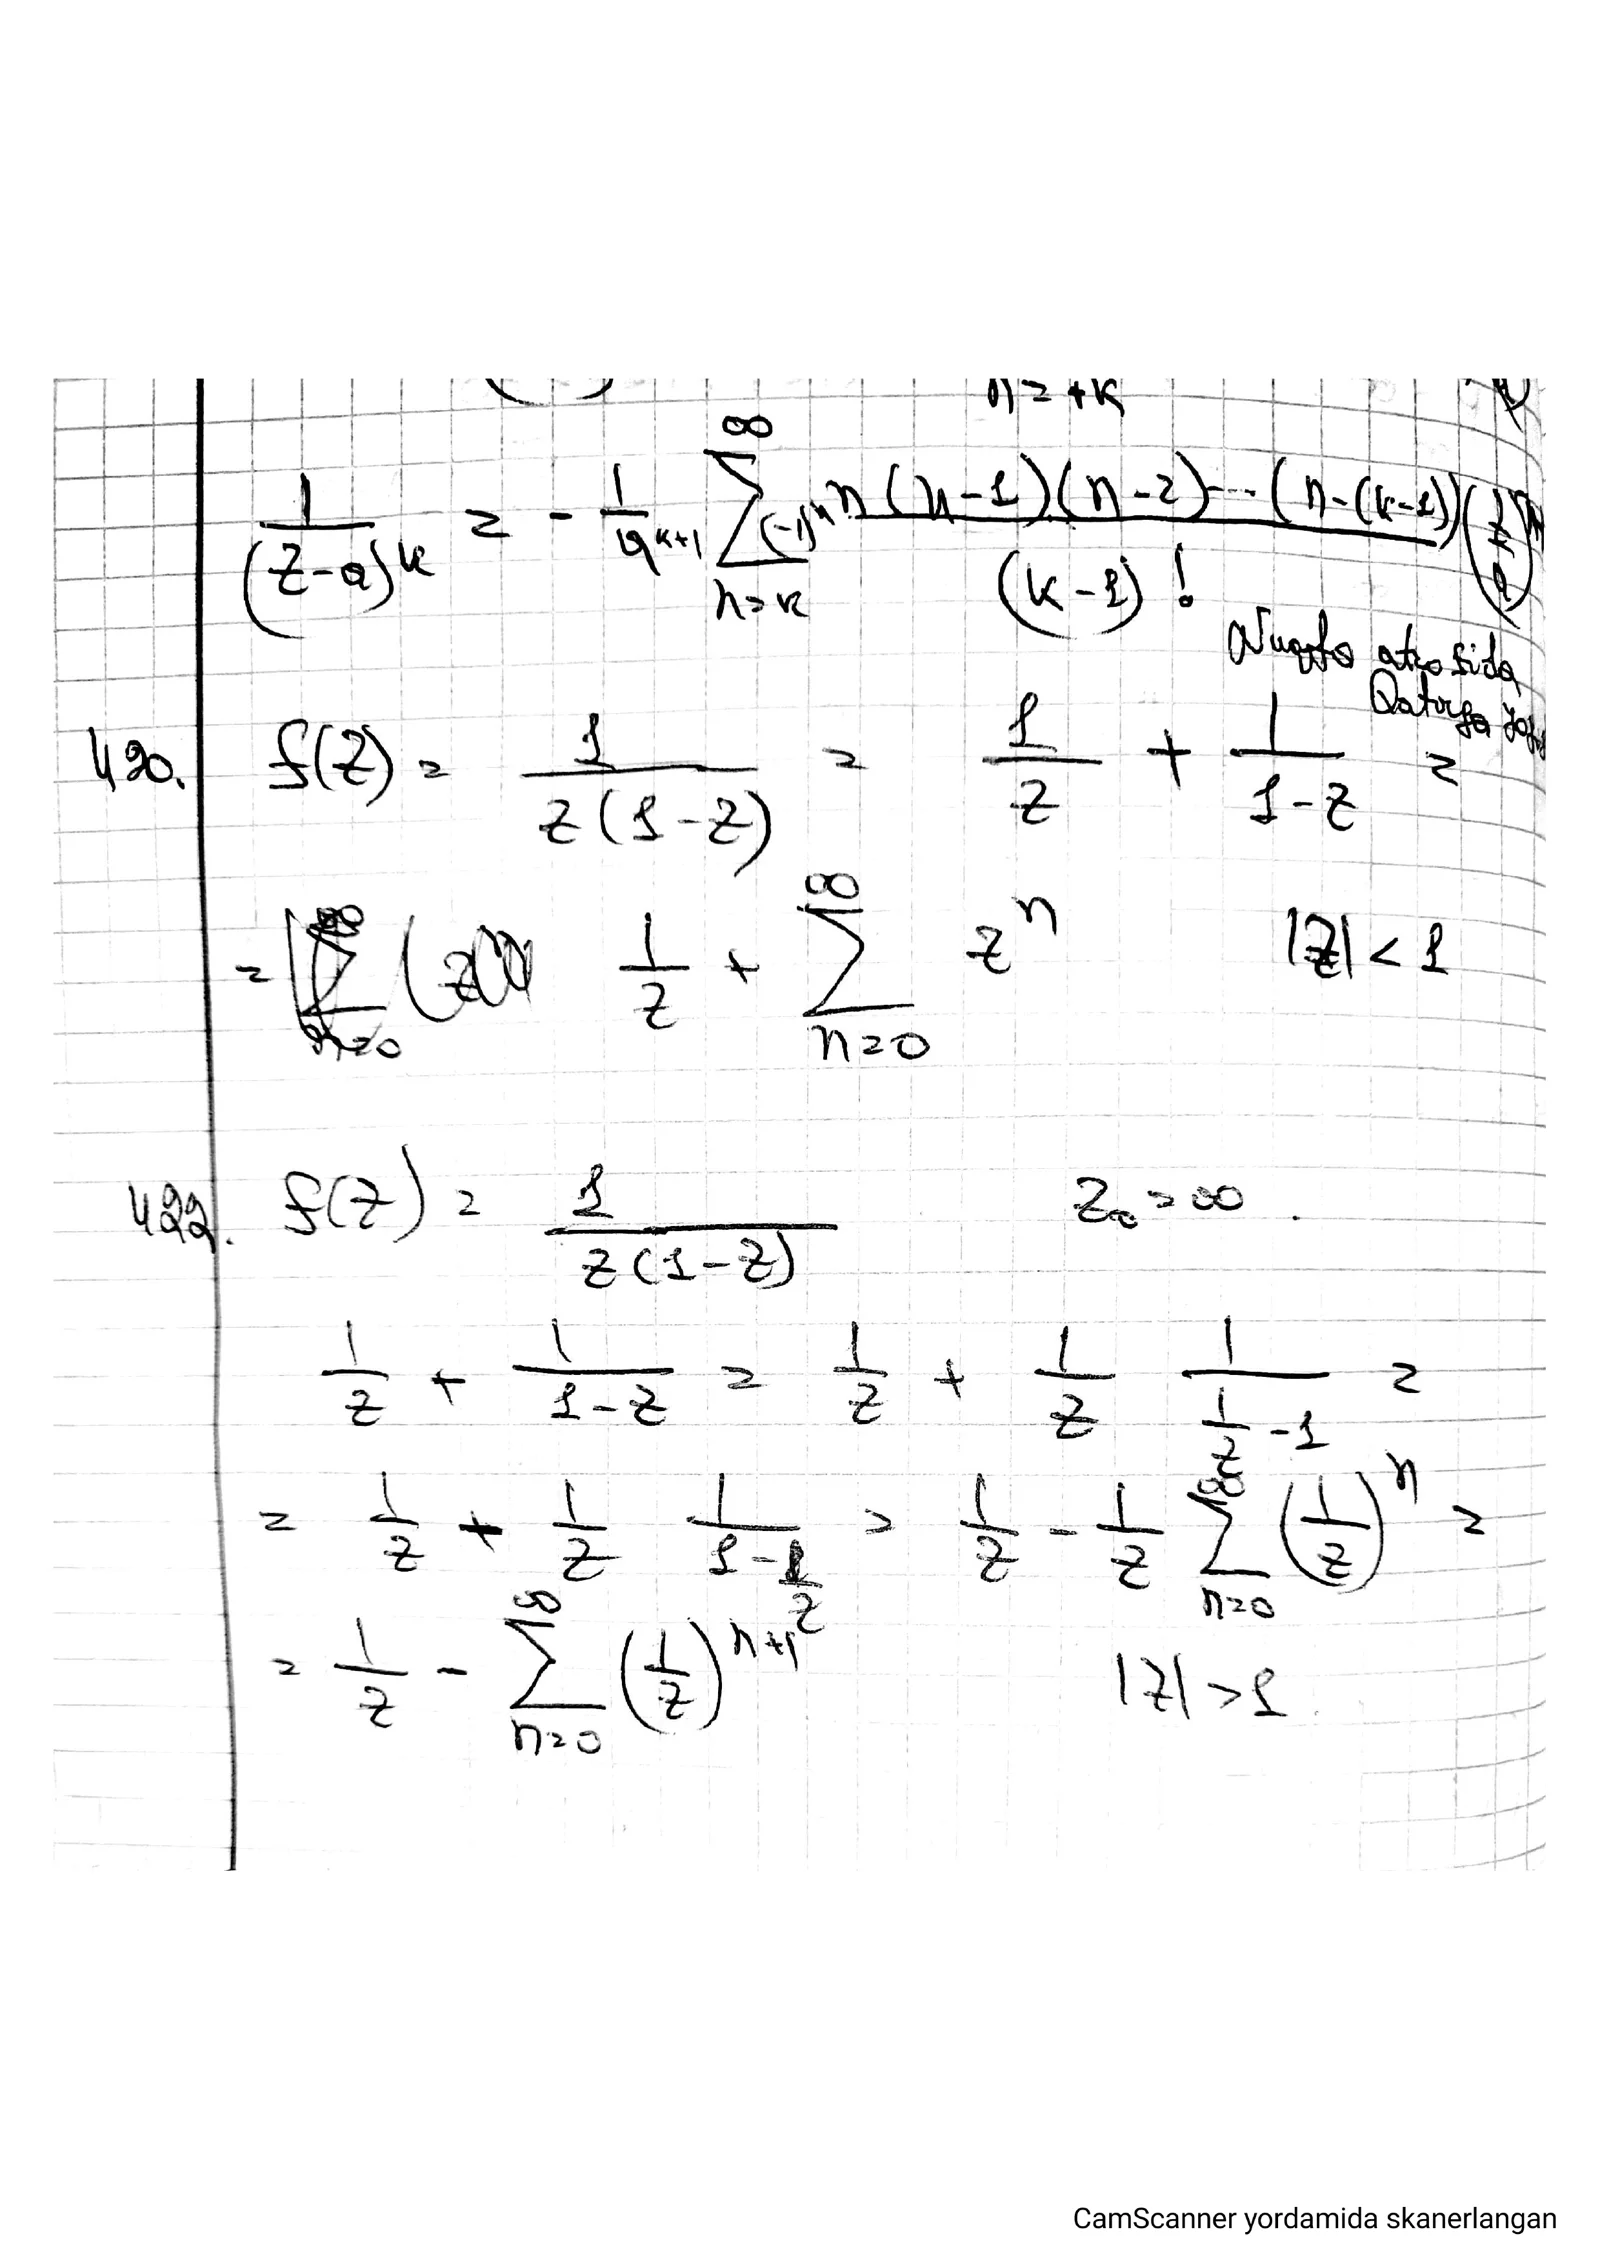 n = +k
1/(z-a)^k = - 1/a^{k+1} ∑_{n=k}^{∞} (-1)^n n(n-1)(n-2)...(n-(k-1))/(k-1)! (z/a)^n
Nuqta atrofida
Qatorga
420. f(z) = 1/(z(1-z)) = 1/z + 1/(1-z) =
= 1/z + ∑_{n=0}^{∞} z^n |z| < 1
422. f(z) = 1/(z(1-z)) z_0 = ∞.
1/z + 1/(1-z) = 1/z + 1/z 1/(1/z -1) =
= 1/z + 1/z 1/(1-1/z) = 1/z - 1/z ∑_{n=0}^{∞} (1/z)^n =
= 1/z - ∑_{n=0}^{∞} (1/z)^{n+1} |z| > 1
CamScanner yordamida skanerlangan